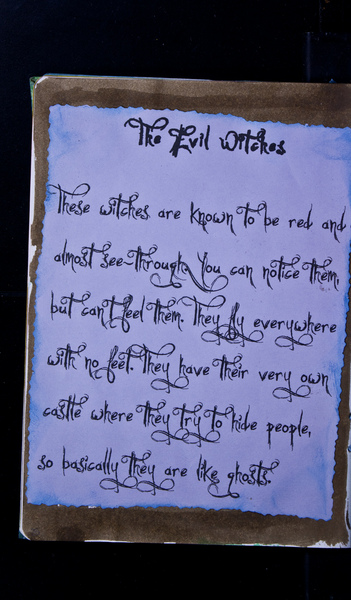 The Evil Witches
These witches are known to be red and
almost see-through. You can notice them,
but can't feel them. They fly everywhere
with no feet. They have their very own
castle where they try to hide people,
so basically they are like ghosts.